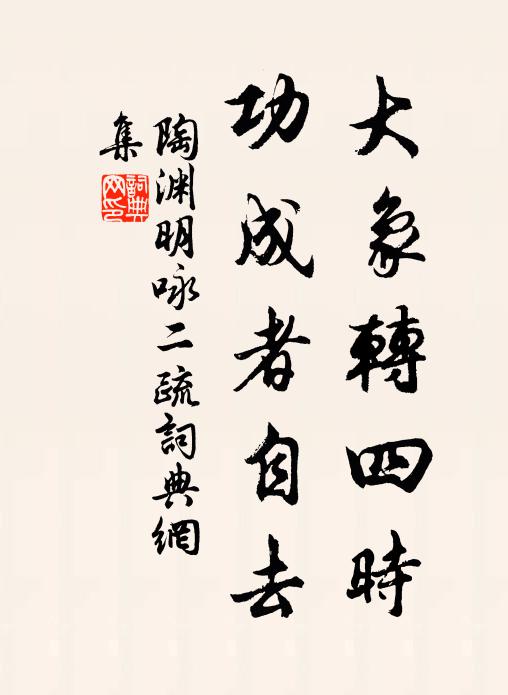 大象轉四時
功成者自去
陶渊明咏二疏詞典網
集
詞典
网印